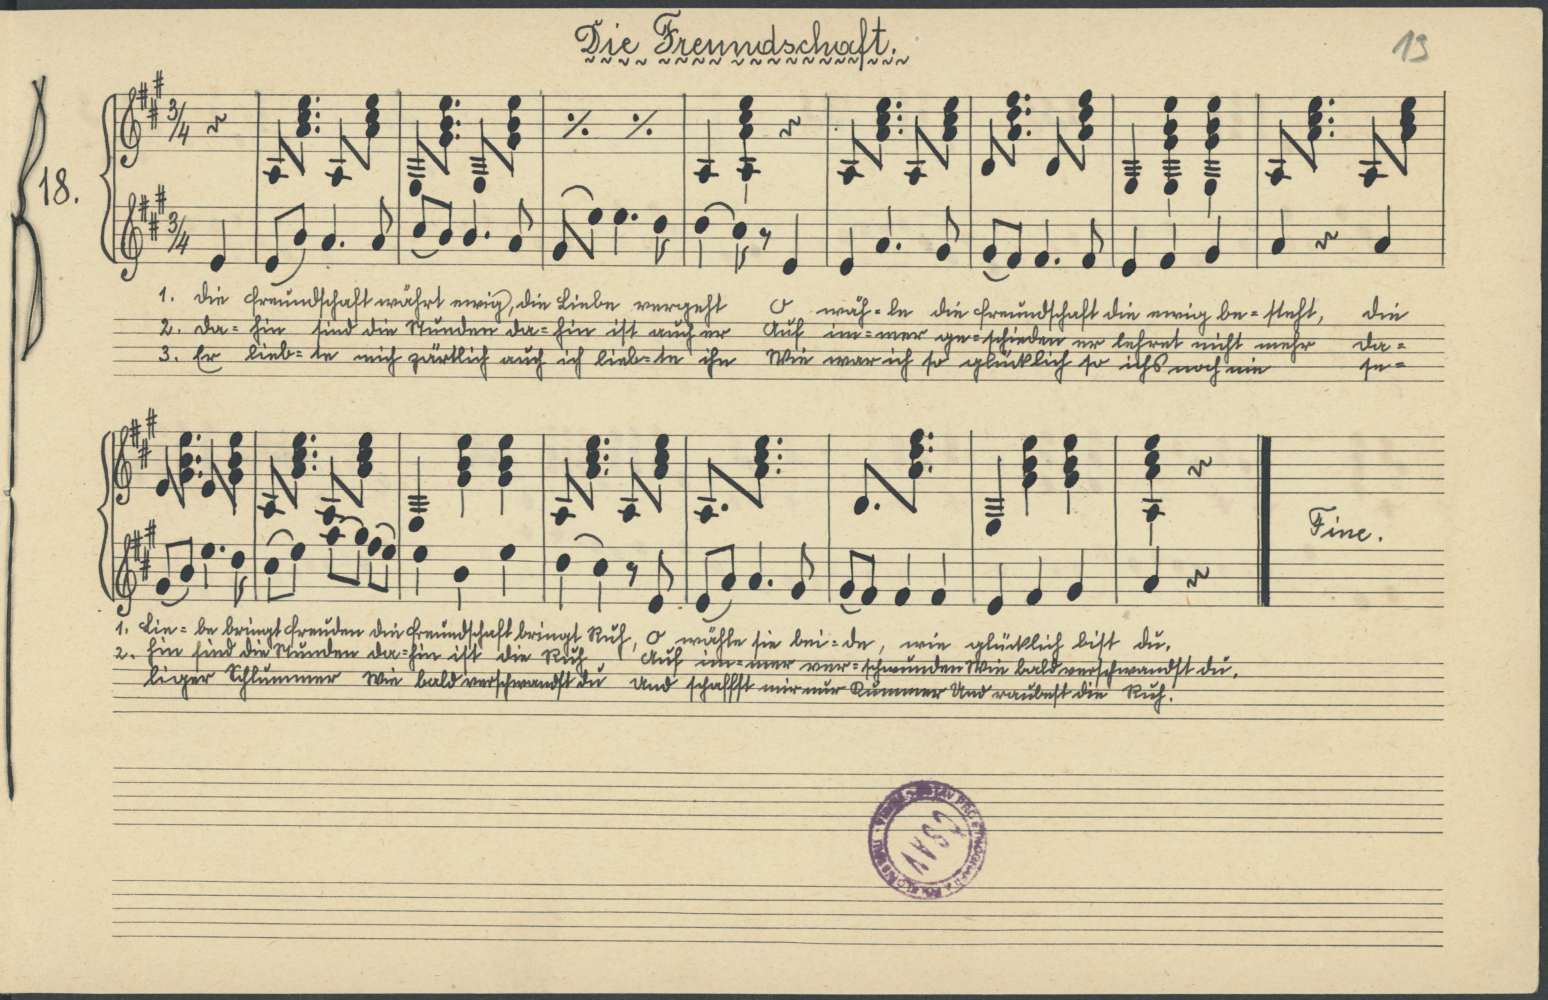 Die Freundschaft.
19
18.
3/4
3/4
1. Die Freundschaft währt ewig, die Liebe vergeht O wäh-le die Freundschaft die ewig be-steht, die
2. Da-hin sind die Stunden da-hin ist auch er Auf im-mer ge-schieden er lehret nicht mehr Da-
3. Er lieb-te mich zärtlich auch ich lieb-te ihn Wie war ich so glücklich so ichs noch nie se-
1. Lie-be bringt Freuden die Freundschaft bringt Ruh, O wähle sie bei-de, wie glücklich bist du.
2. hin sind die Stunden da-hin ist die Ruh Auf im-mer ver-schwunden Wie bald verschwandst du.
liger Schlummer Wie bald verschwandst du Und schaffst mir nur Kummer Und raubest die Ruh.
Fine.